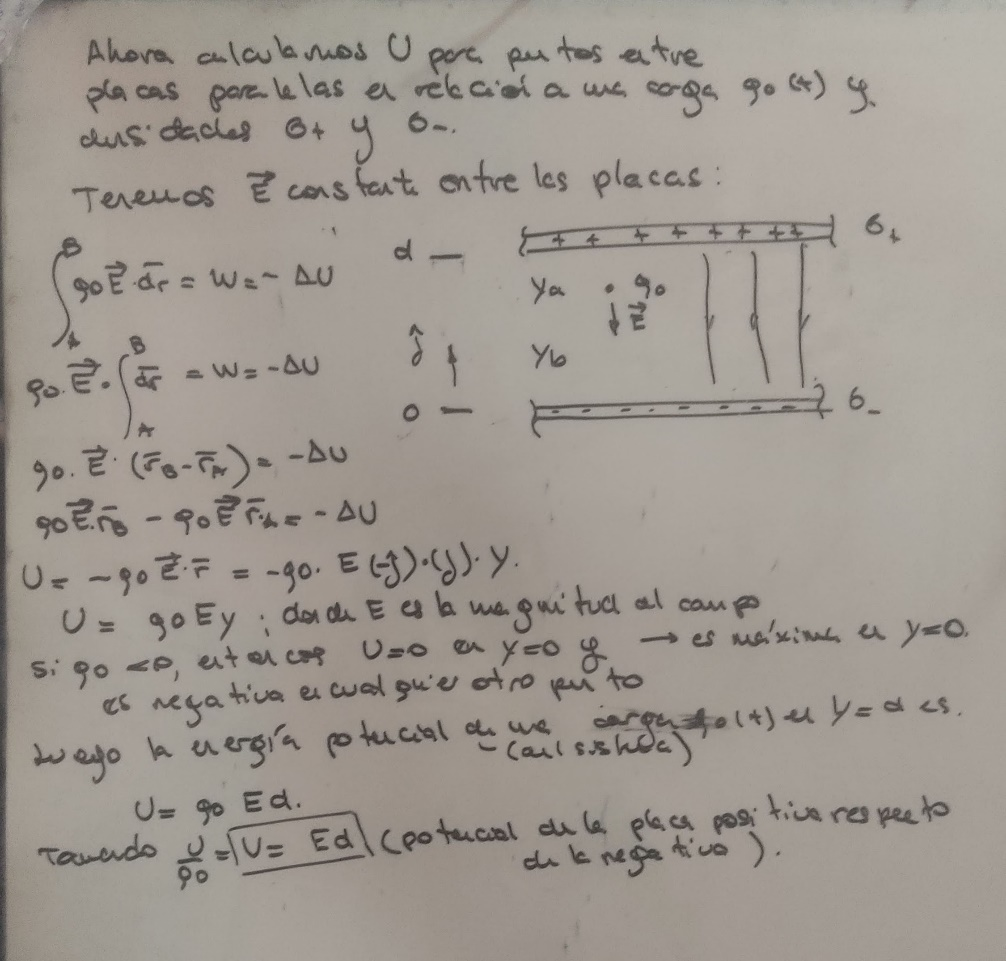 Ahora calculamos U para puntos entre
placas paralelas en relación a una carga q0 (+) y
densidades σ+ y σ-.
Tenemos E⃗ constante entre las placas:
∫_A^B q0 E⃗ · d̅r = W = - ΔU
q0. E⃗ · ∫_A^B d̅r = W = -ΔU
q0. E⃗ · (r̅B - r̅A) = -ΔU
q0 E⃗. r̅B - q0 E⃗ r̅A = - ΔU
U = -q0 E⃗. r̅ = -q0. E (-ĵ)·(ĵ). y.
U = q0 E y ; donde E es la magnitud del campo
si q0 <0, entonces U=0 en y=0 y → es máxima en y=0.
es negativa en cualquier otro punto
Luego la energía potencial de una carga q0 (+) en y=d es.
(del sistema)
U= q0 Ed.
Tomando U/q0 = V= Ed (potencial de la placa positiva respecto
de la negativa).
d
ĵ
0
+ + + + + + + +
σ+
ya
q0
E⃗
yb
- - - - - - - -
σ-